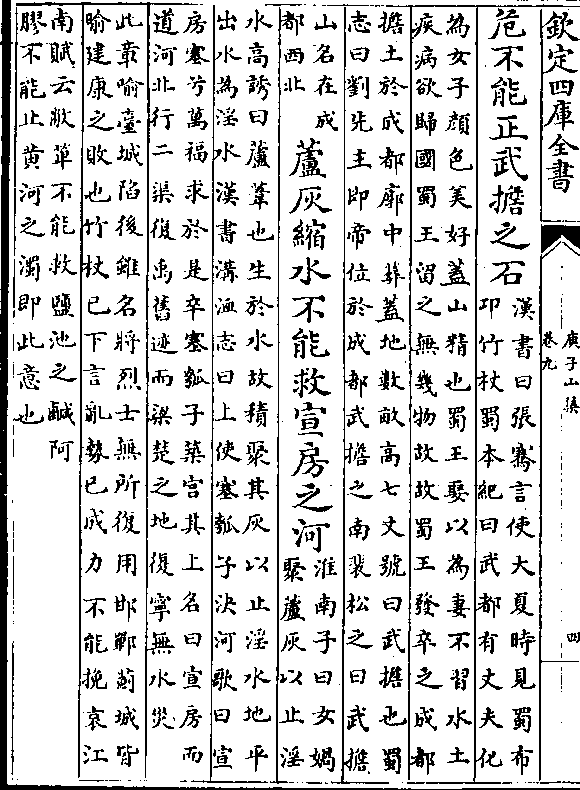 欽定四庫全書
庾子山集
卷九
四
危不能正武擔之石
漢書曰張騫言使大夏時見蜀布
卭竹杖蜀本紀曰武都有丈夫化
為女子顔色美好蓋山精也蜀王娶以為妻不習水土
疾病欲歸國蜀王留之無幾物故故蜀王發卒之成都
擔土於成都郭中葬蓋地數畝高七丈號曰武擔也蜀
志曰劉先主即帝位於成都武擔之南裴松之曰武擔
山名在成
都西北
蘆灰縮水不能救宣房之河
淮南子曰女媧
聚蘆灰以止淫
水高誘曰蘆葦也生於水故積聚其灰以止淫水地平
出水為淫水漢書溝洫志曰上使塞瓠子決河歌曰宣
房塞兮萬福求於是卒塞瓠子築宫其上名曰宣房而
道河北行二渠復禹舊迹而梁楚之地復寧無水災
此章喻臺城陷後雖名將烈士無所復用邯鄲薊城皆
喻建康之敗也竹杖已下言亂勢已成力不能挽哀江
南賦云敝箄不能救鹽池之鹹阿
膠不能止黄河之濁即此意也